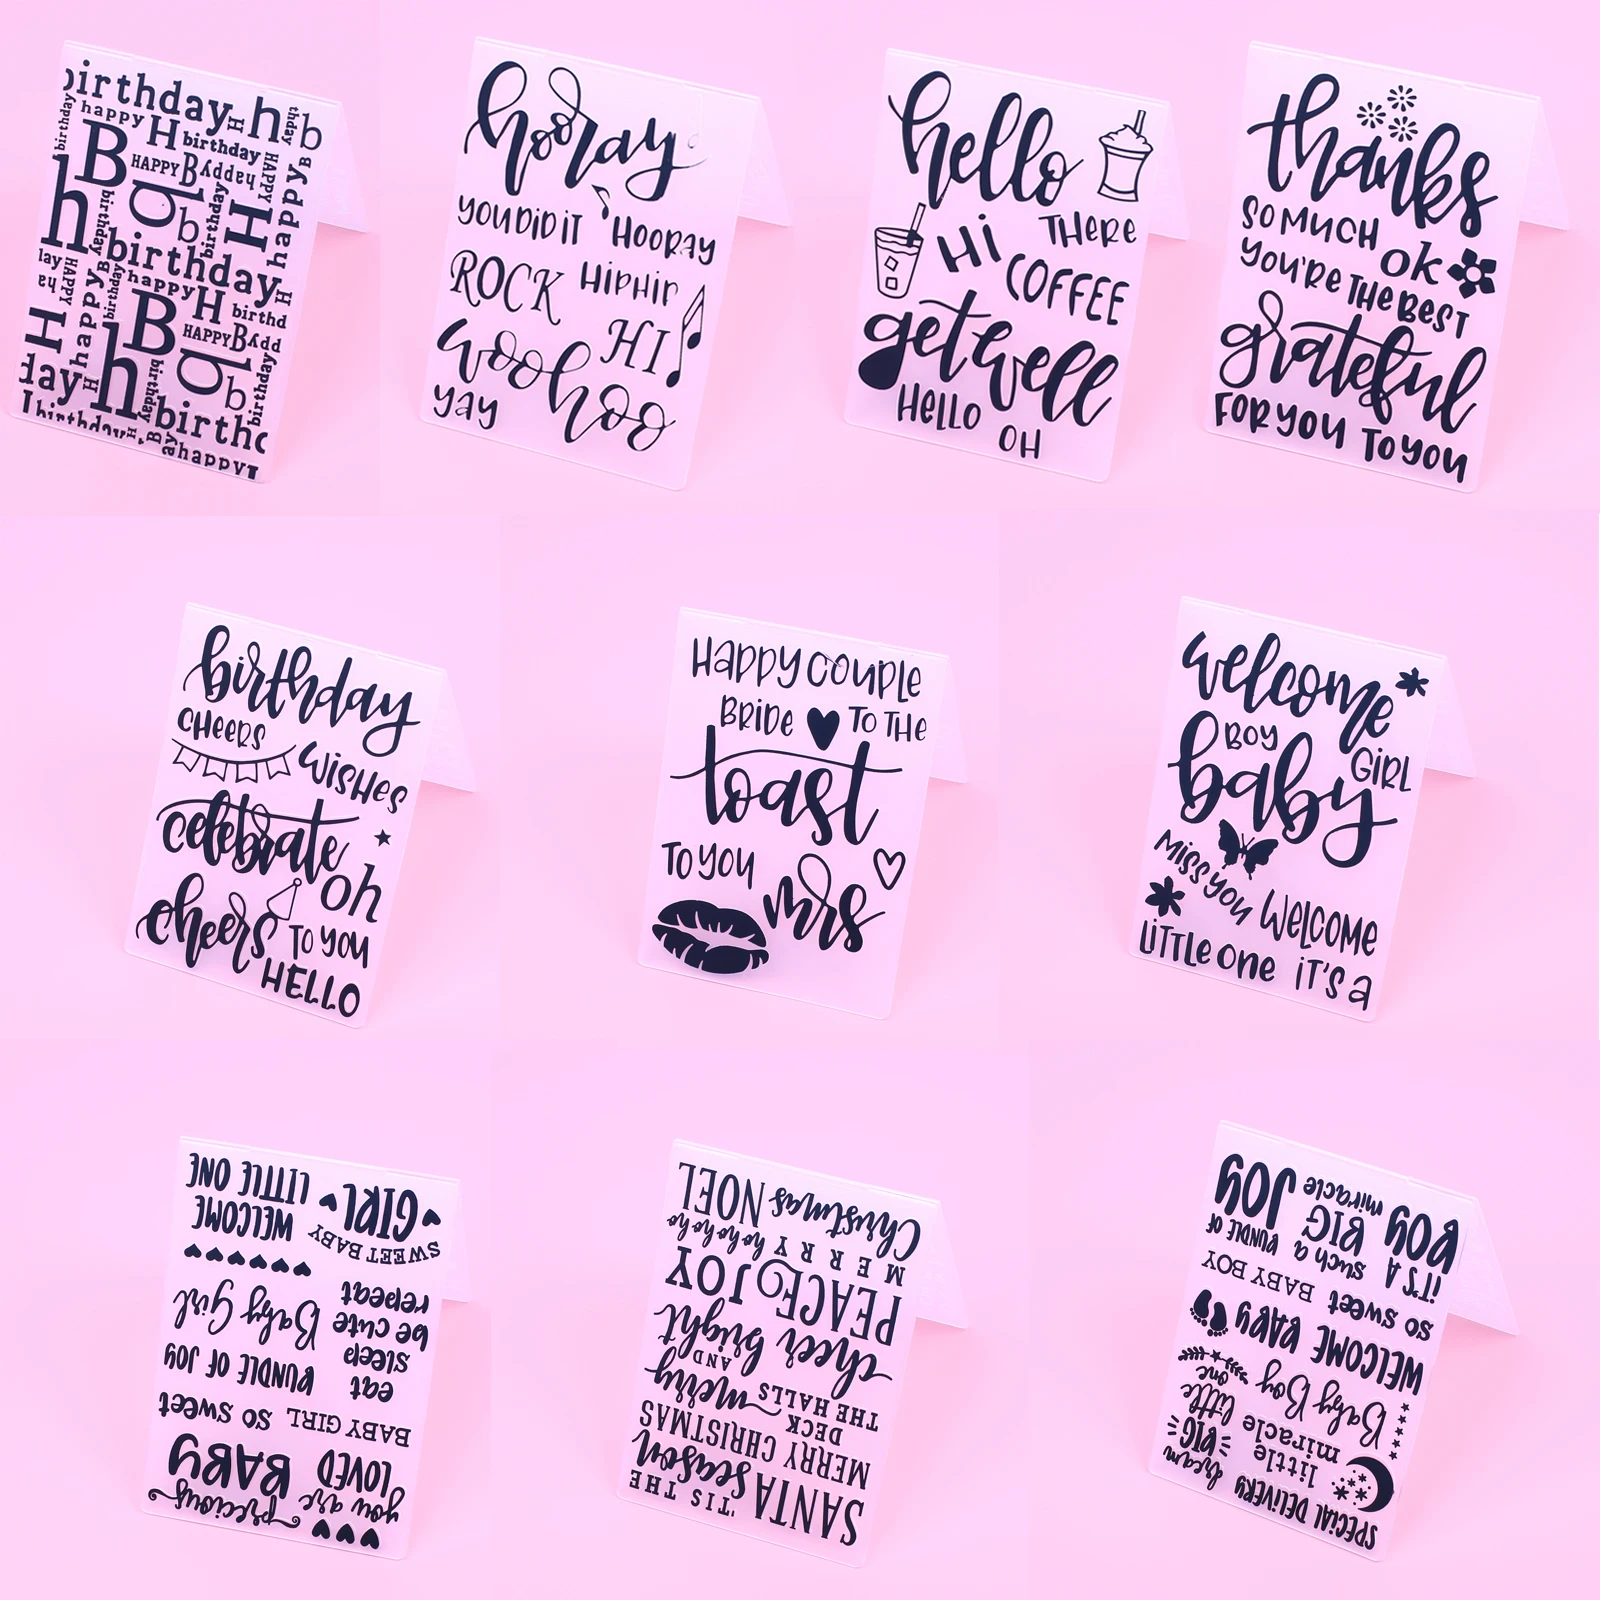 birthday h
happy H H b
birthday
B birthday
HAPPY B happy
h b
birthday H
birthday
happy H birthd
B HAPPY B
h b
day birthday
happy
hooray
YOU DID IT HOORAY
ROCK HIP HIP
HI
woohoo
yay
hello
Hi THERE
COFFEE
get well
HELLO
OH
thanks
SO MUCH ok
YOU'RE THE BEST
grateful
FOR YOU TO YOU
birthday
CHEERS
WISHES
celebrate
oh
cheers
TO YOU
HELLO
HAPPY COUPLE
BRIDE TO THE
toast
TO YOU
mrs
welcome
BOY GIRL
baby
MISS YOU
WELCOME
LITTLE ONE IT'S A
precious you are
BABY LOVED
so sweet BABY GIRL
BUNDLE OF JOY eat
sleep
Baby Girl be cute
repeat
SWEET BABY
WELCOME GIRL
LITTLE ONE
'TIS THE
SANTA season
MERRY CHRISTMAS
DECK
THE HALLS merry
AND
cheer bright
PEACE JOY
MERRY hohoho
Christmas NOEL
SPECIAL DELIVERY
BIG dream
little miracle
little one
Baby Boy
WELCOME BABY
so sweet BABY BOY
IT'S A such a BUNDLE OF
BOY BIG JOY
miracle